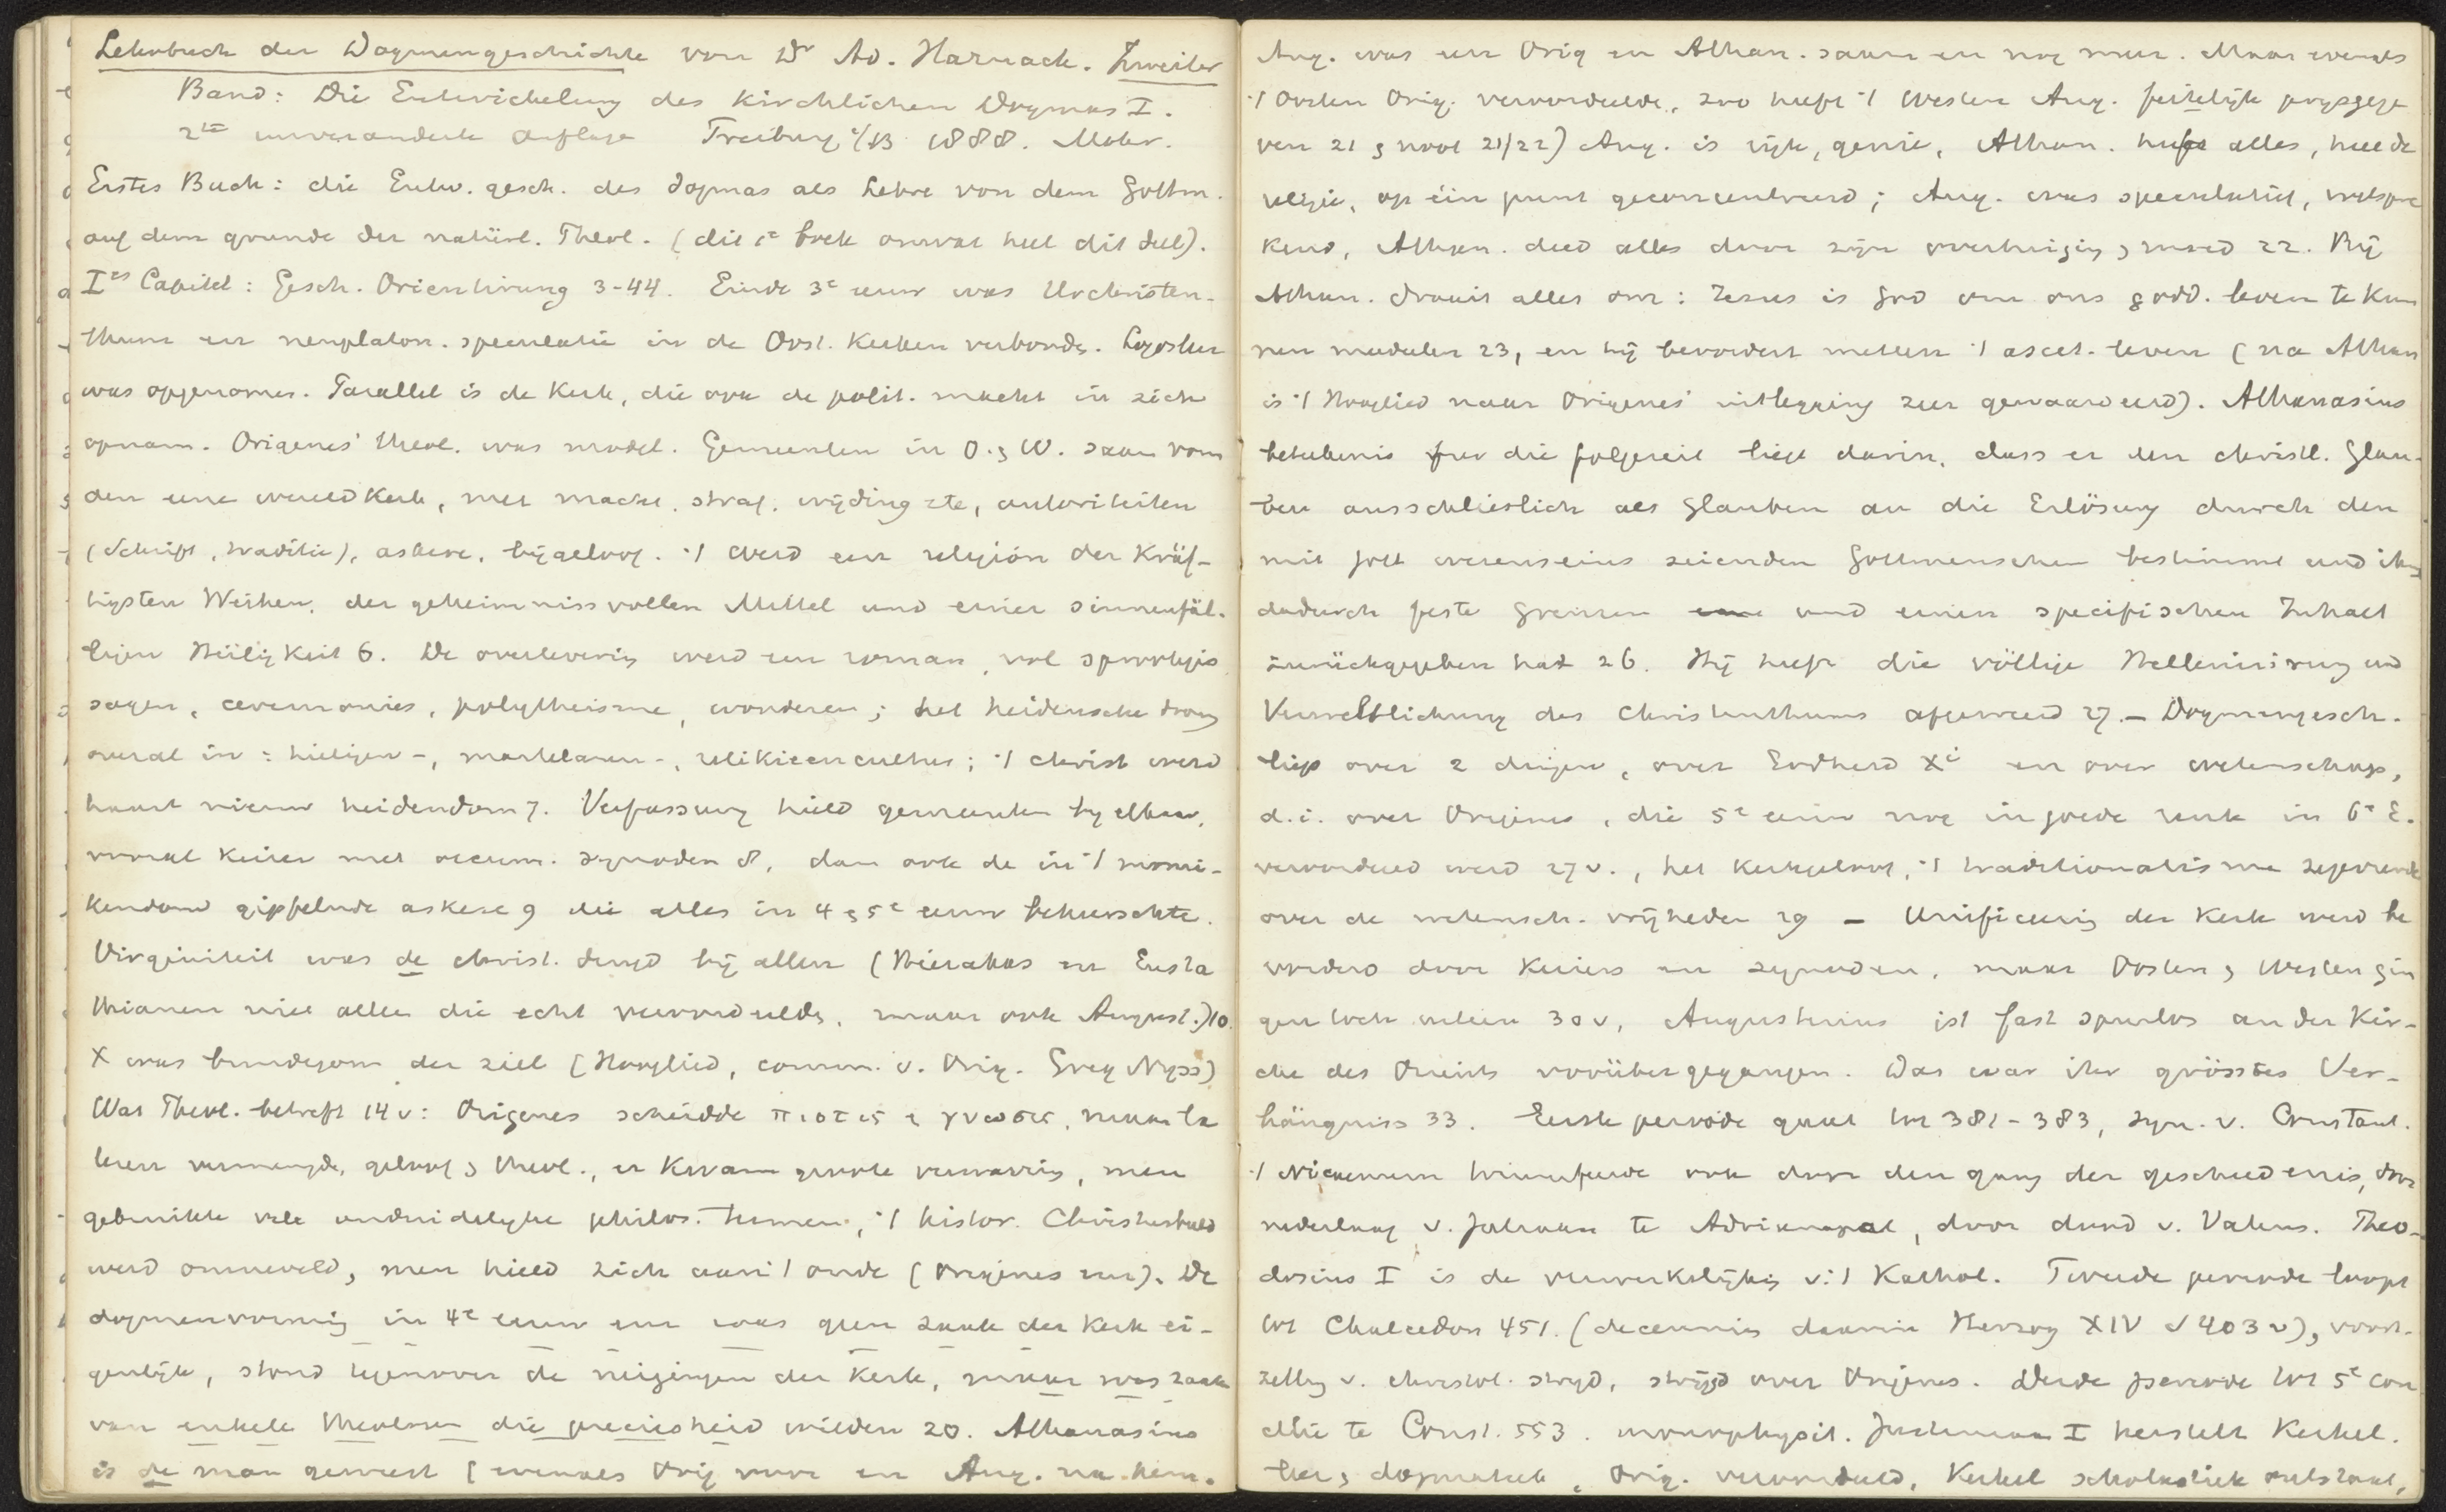 Lehrbuch der Dogmengeschichte von Dr Ad. Harnack. Zweiter
Band: Die Entwickelung des Kirchlichen Dogmas I.
2te unveränderte Auflage Freiburg i/B 1888. Mohr.
Erstes Buch: die Entw. gesch. des Dogmas als Lehre von dem Gottm.
auf dem grunde der natürl. Theol. (dit 1e boek omvat heel dit deel).
Ies Capitel: Gesch. Orientirung 3-44. Einde 3e eeuw was Urchristen-
thum en neuplaton. speculatie in de Oost. Kerken verbonde. Logosleer
was opgenomen. Parallel is de Kerk, die ook de polit. macht in zich
opnam. Origenes' theol. was model. Gemeenten in O. & W. saam vorm
den eene wereldkerk, met macht, straf, wijding etc, autoriteiten
(Schrift, traditie), askese, bijgeloof. 't werd een religion der Kräf-
tigsten Weihen, der geheimnissvollen Mittel und einer sinnenfäl-
ligen Heiligkeit 6. De overlevering werd een roman, vol sprookjes
sagen, ceremonies, polytheisme, wonderen; het heidensche drong
overal in: heiligen-, martelaren-, relikieencultus; 't christ. werd
haast nieuw heidendom 7. Verfassung hield gemeenten bij elkaar,
vooral keizer met oecum. synoden 8, dan ook de in 't monni-
kendom gipfelnde askese 9 die alles in 4 & 5e eeuw beheerschte.
Virginiteit was de christ. deugd bij allen (Hierakas en Eusta
thianen niet allen die echt veroordeelde, maar ook August.) 10.
X was bruidegom der ziel (Hooglied, comm. v. Orig. Greg Nyss)
Wat Theol. betreft 14v: Origenes scheidde πιστις & γνωσις, maar la
teren vermengde, geloof & theol., er kwam groote verwarring, men
gebruikte vele onduidelijke philos. termen, 't histor. Christusbeeld
werd omneveld, men hield zich aan 't oude (Origenes enz). De
dogmenvorming in 4e eeuw enz was geen zaak der Kerk ei-
genlijk, stond tegenover de neigingen der Kerk, maar was zaak
van enkele theologen die preciesheid wilden 20. Athanasius
is de man geweest (evenals Orig voor en Aug. na hem.
Aug. was een Orig en Athan. saam en nog meer. Maar evenals
't Oosten Orig. veroordeelde, zoo heeft 't Westen Aug. feitelijk prijsgege
ven 21 & noot 21/22) Aug. is rijk, genie, Athan. heeft alles, heel de
religie, op één punt geconcentreerd; Aug. was speculatief, welspre
kend, Athan. deed alles door zijn overtuiging & moed 22. Bij
Athan. draait alles om: Jezus is God om ons godd. leven te kun
nen mededeelen 23, en hij bevordert meteen 't ascet. leven (na Athan
is 't Hooglied naar Origenes' uitlegging zeer gewaardeerd). Athanasius
beteekenis für die folgezeit liegt darin, dass er den christl. Glau-
ben ausschliestlich als Glauben an die Erlösung durch den
mit Gott wesenseins seienden Gottmenschen bestimmt und ihm
dadurch feste Grenzen und einen specifischen Inhalt
zurückgegeben hat 26. Hij heeft die völlige Hellenisirung und
Verweltlichung des Christenthums afgeweerd 27. — Dogmengesch.
liep over 2 dingen, over Godheid Xi en over wetenschap,
d.i. over Origenes, die 5e eeuw nog in goede reuk in 6e E.
veroordeeld werd 27v., het kerkgeloof, 't traditionalisme zegevierde
over de wetensch. vrijheden 29 — Unificeering der Kerk werd be
vorderd door Keizers en synoden, maar Oosten & Westen gin
gen toch uiteen 30v, Augustinus ist fast spurlos an der Kir-
che des Orients vorübergegangen. Das war ihr grösstes Ver-
hängniss 33. Eerste periode gaat tot 381-383, syn. v. Constant.
't Nicaenum triumfeerde ook door den gang der geschiedenis, door
nederlaag v. Valens te Adrianopel, door dood v. Valens. Theo-
dosius I is de verwerkelijking v. 't Kathol. Tweede periode loopt
tot Chalcedon 451. (decennien daarin Herzog XIV S 403v), voort-
zetting v. christol. strijd, strijd over Origenes. Derde periode tot 5e con
cilie te Const. 553. monophysit. Justinian I herstelt Kerkel.
leer & dogmatiek, Orig. veroordeeld, Kerkel scholastiek ontstaat,